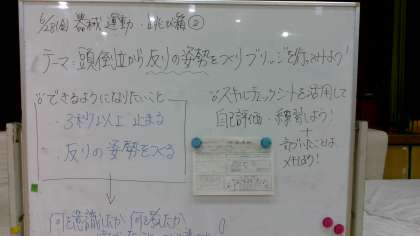 6/28(金) 器械運動・跳び箱②
テーマ:頭倒立から反りの姿勢をつくりブリッジを行ってみよう
☆できるようになりたいこと
・3秒以上 止まる
・反りの姿勢をつくる
☆スキルチェックシートを活用して
自己評価・練習しよう!
+
気づいたことは
メモしよう!
何を意識したか 何を考えたか